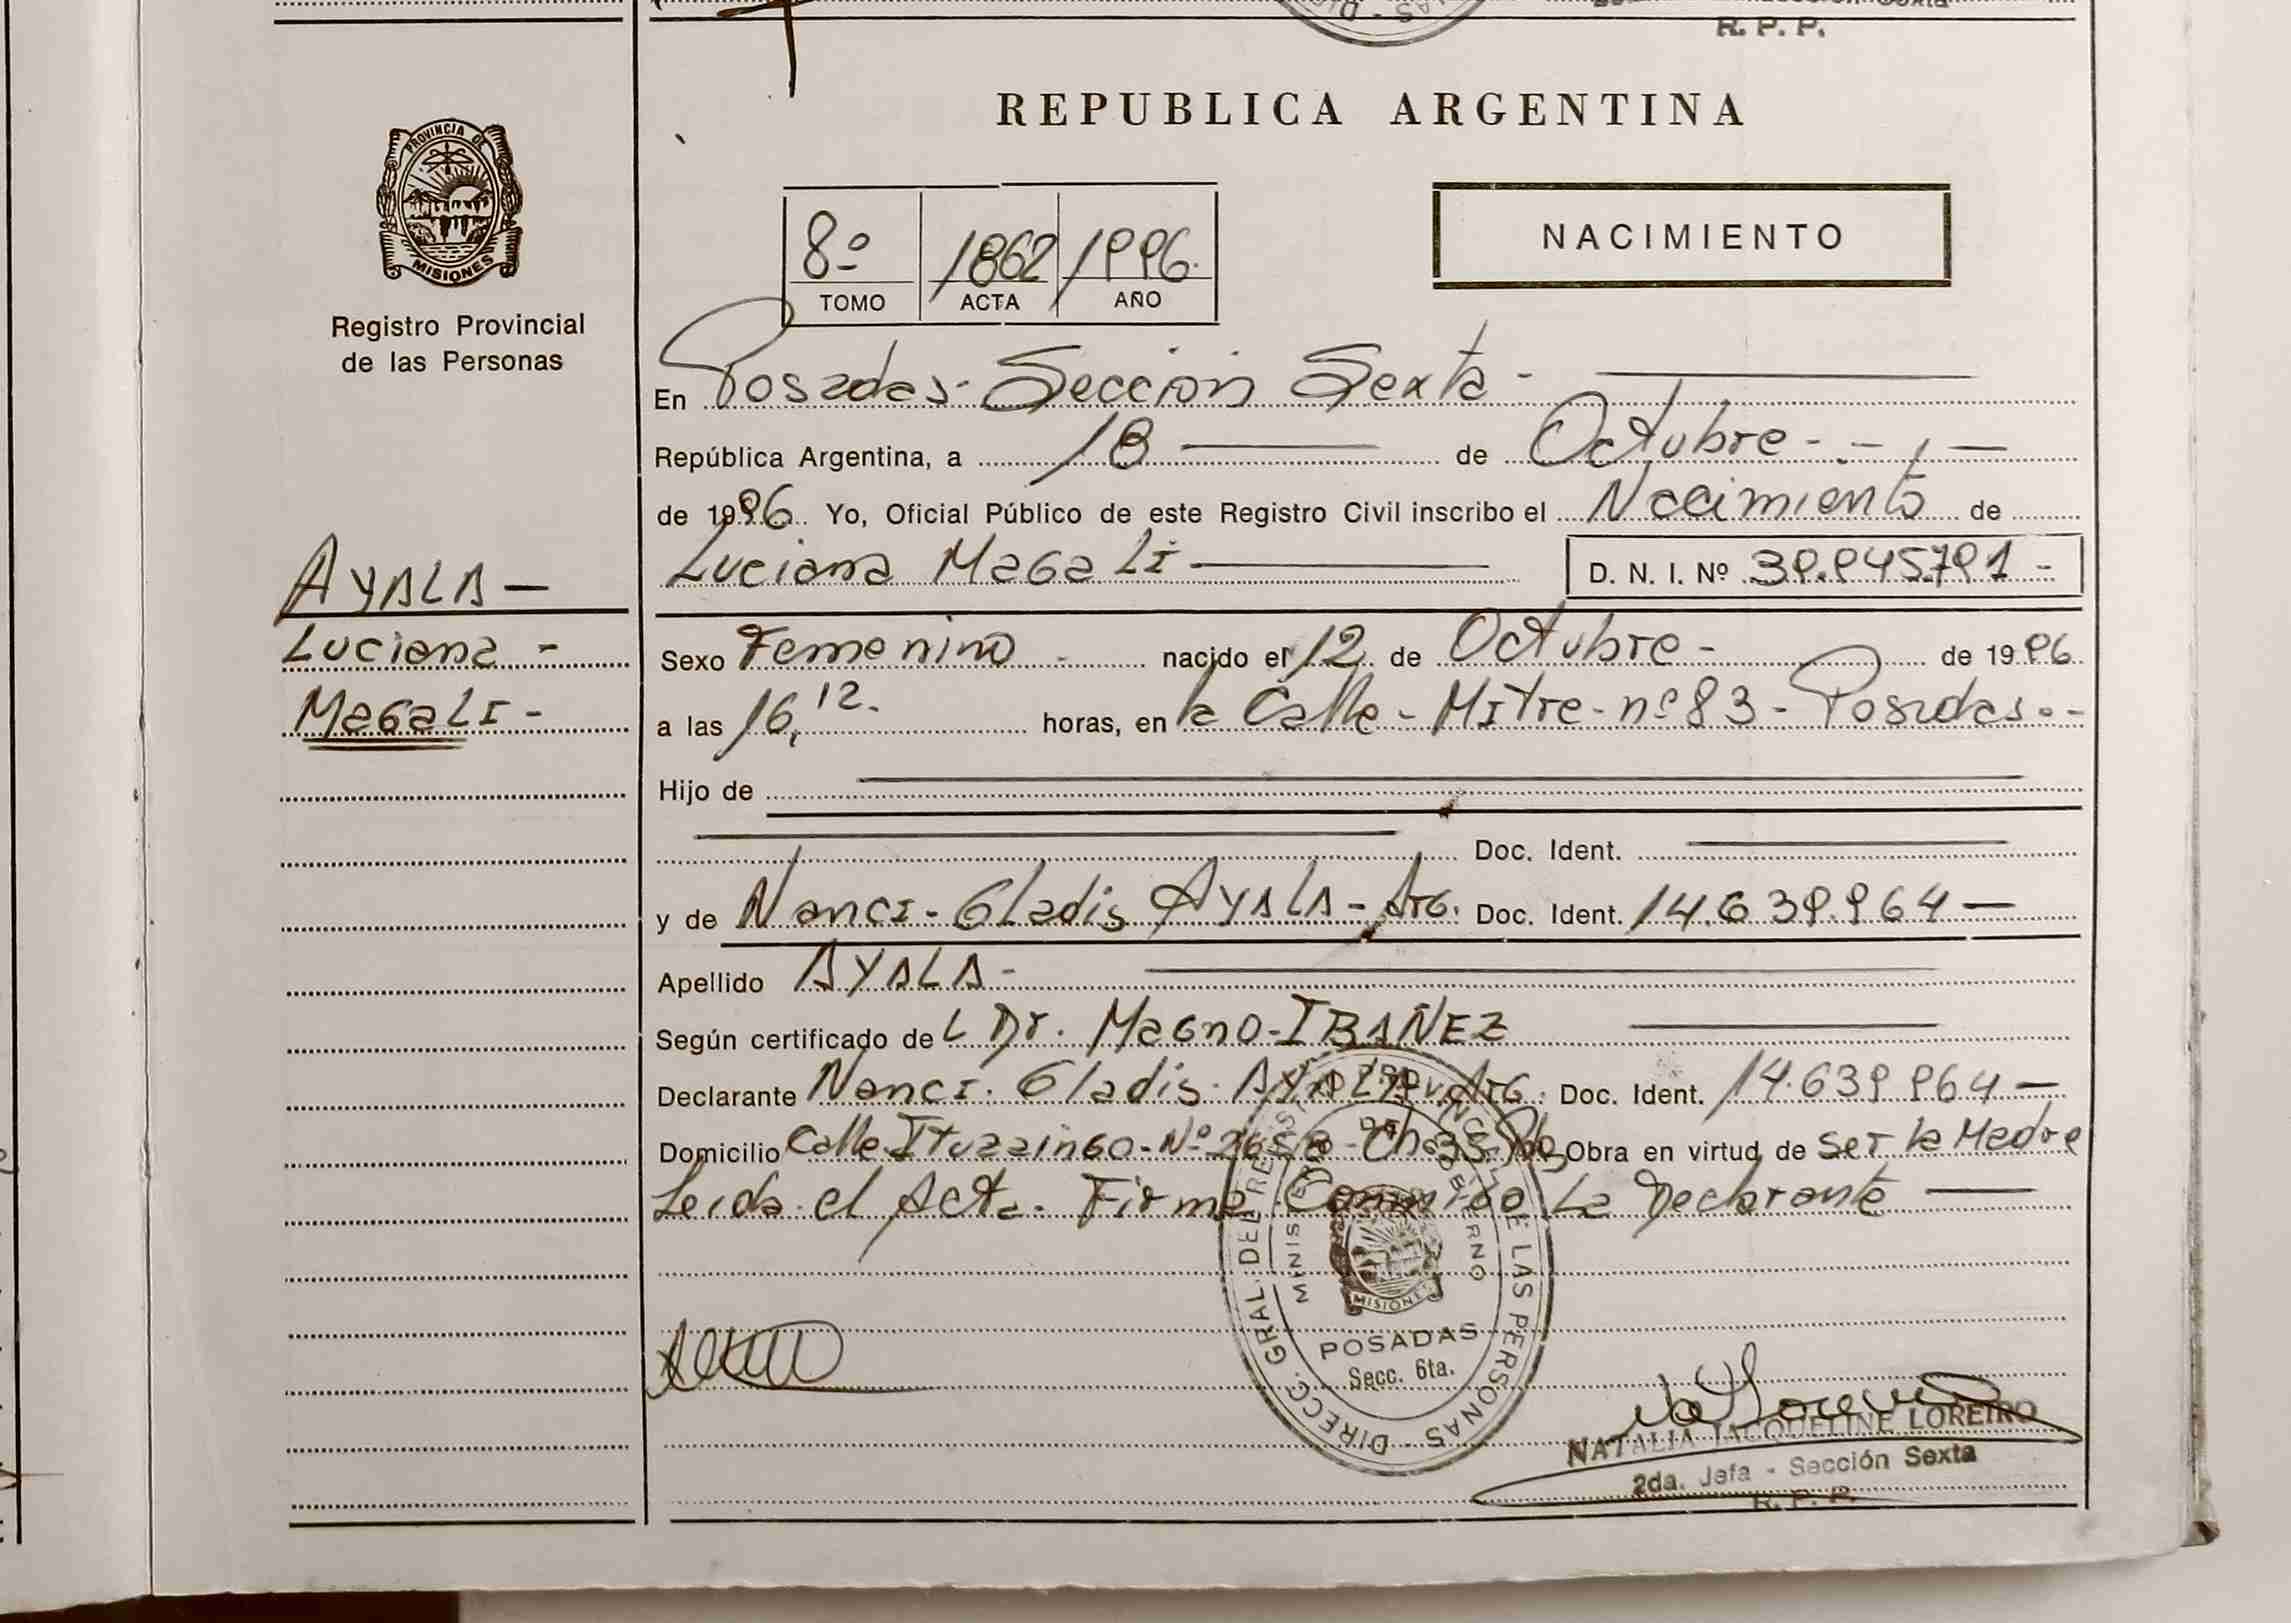 R. P. P.
REPUBLICA ARGENTINA
PROVINCIA DE
MISIONES
Registro Provincial
de las Personas
8º 1862 1996.
TOMO ACTA AÑO
NACIMIENTO
En Posadas - Seccion Sexta -
República Argentina, a 18 de Octubre - . - , -
de 1996 Yo, Oficial Público de este Registro Civil inscribo el Nacimiento de
Luciana Magali D. N. I. Nº 39.945.791 -
AYALA -
Luciana -
Magali -
Sexo Femenino - nacido el 12 de Octubre - de 1996
a las 16,12. horas, en la Calle - Mitre - nº 83 - Posadas. -
Hijo de
Doc. Ident.
y de Nanci - Gladis AYALA - Arg. Doc. Ident. 14.639.964 -
Apellido AYALA -
Según certificado de L Dr. Magno - IBAÑEZ
Declarante Nanci. Gladis. AYALA Arg. Doc. Ident. 14.639 964 -
Domicilio Calle Ituzaingo - Nº Obra en virtud de ser la Madre
Leida el Acta. Firma Conmigo La Declarante
DIRECC. GRAL. DEL REGISTRO PROVINCIAL DE LAS PERSONAS
MINISTERIO DE GOBIERNO
MISIONES
POSADAS
Secc. 6ta.
NATALIA JACQUELINE LOREIRO
2da. Jefa - Sección Sexta
R. P. P.